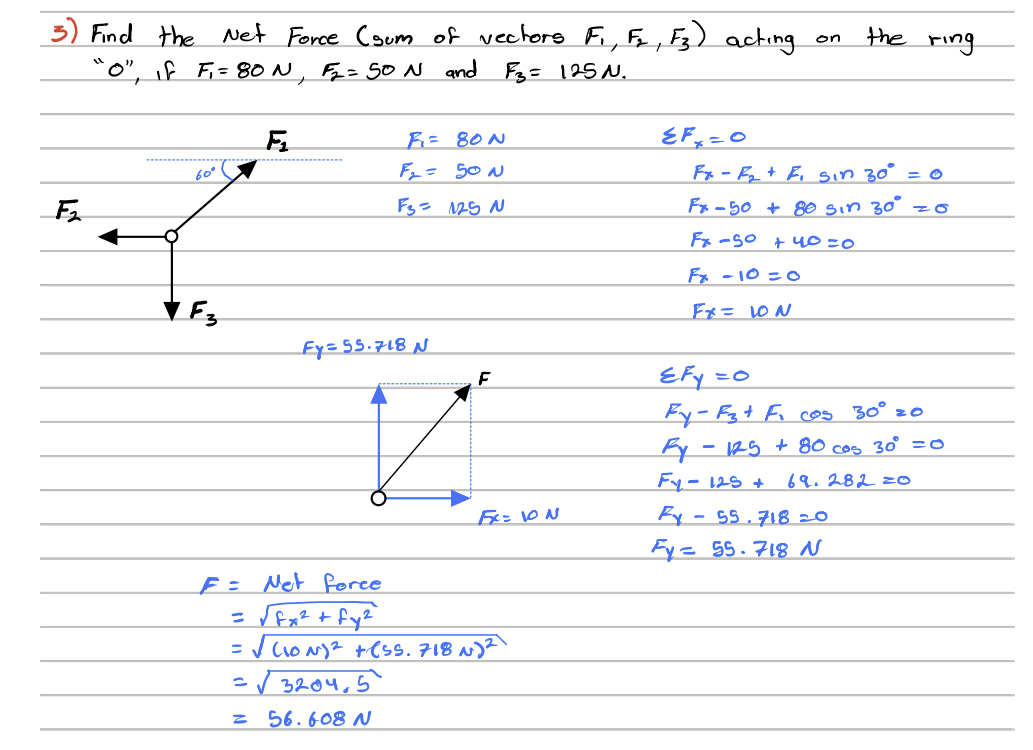 3) Find the Net Force (sum of vectors F₁, F₂, F₃) acting on the ring
"O", if F₁ = 80 N, F₂ = 50 N and F₃ = 125 N.
F₁
60°
F₂
F₃
F₁ = 80 N
F₂ = 50 N
F₃ = 125 N
ΣFx = 0
Fx - F₂ + F₁ sin 30° = 0
Fx - 50 + 80 sin 30° = 0
Fx - 50 + 40 = 0
Fx - 10 = 0
Fx = 10 N
Fy = 55.718 N
F
Fx = 10 N
ΣFy = 0
Fy - F₃ + F₁ cos 30° = 0
Fy - 125 + 80 cos 30° = 0
Fy - 125 + 69.282 = 0
Fy - 55.718 = 0
Fy = 55.718 N
F = Net force
= √fx² + fy²
= √(10 N)² + (55.718 N)²
= √3204.5
= 56.608 N